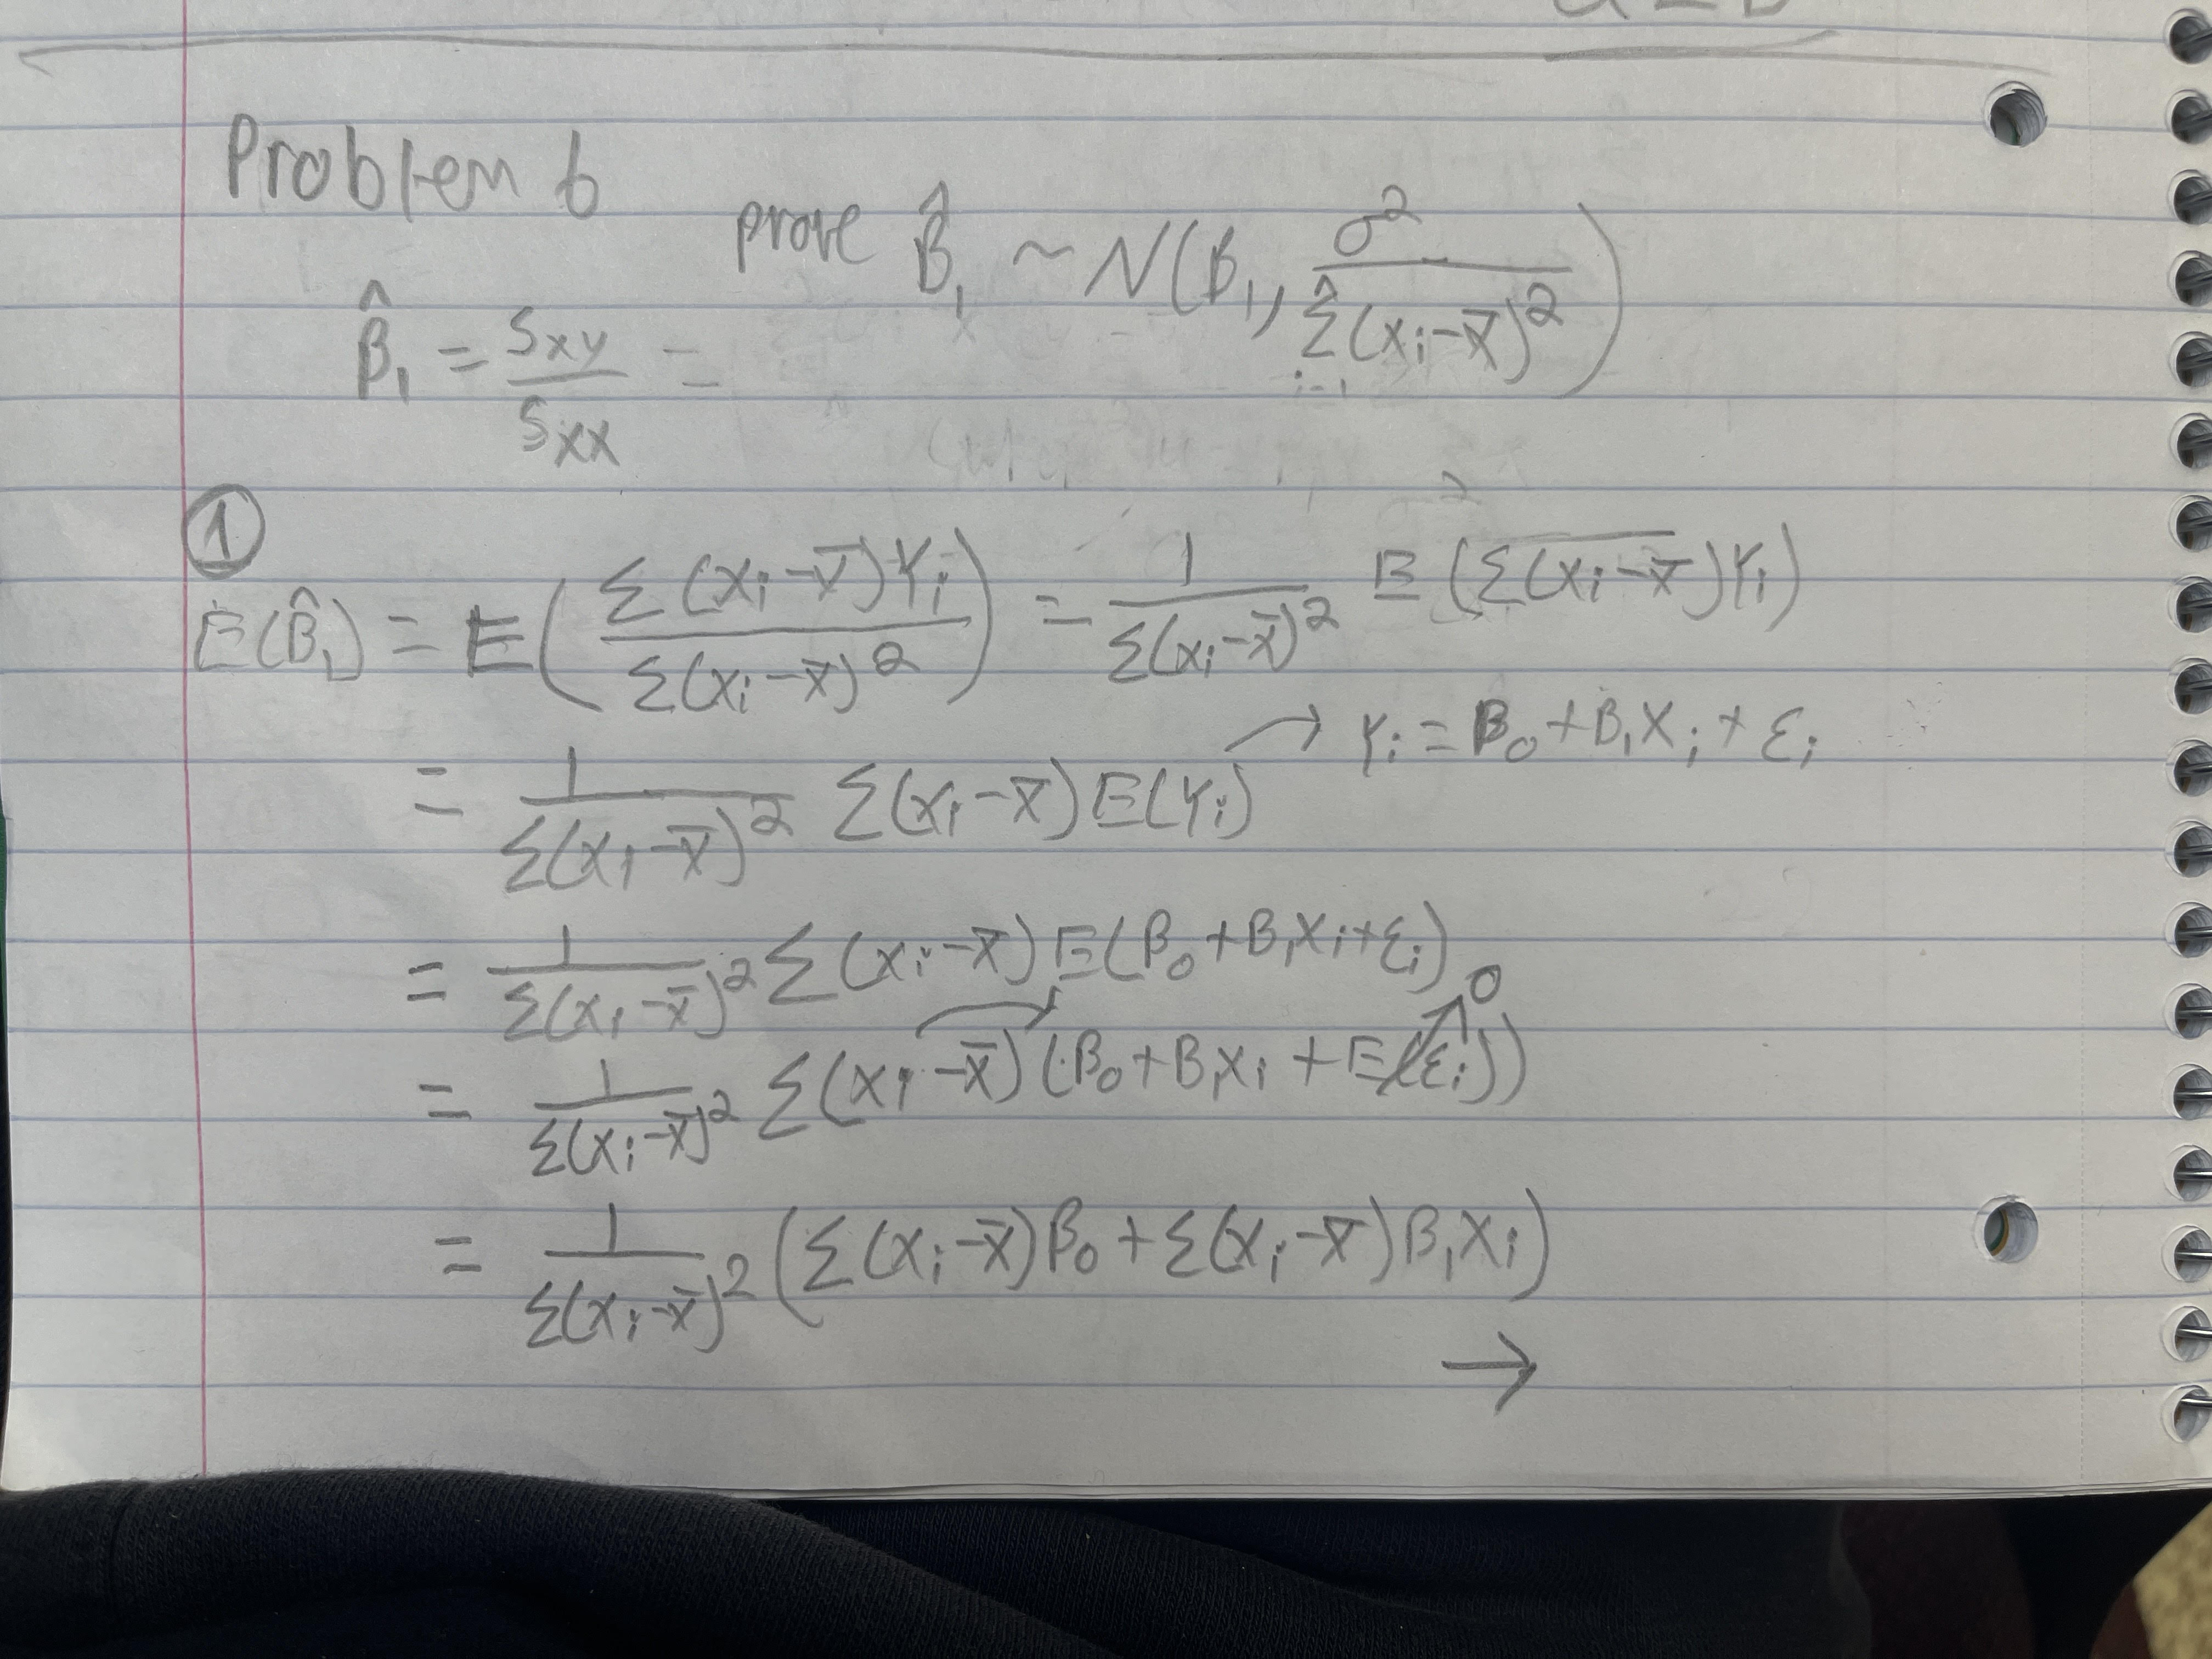 Problem 6
prove β̂₁ ~ N(β₁, σ² / Σ̂ᵢ₌₁(xᵢ-x̄)²)
β̂₁ = Sxy / Sxx =
①
E(β̂₁) = E(Σ(xᵢ-x̄)Yᵢ / Σ(xᵢ-x̄)²) = 1 / Σ(xᵢ-x̄)² E(Σ(xᵢ-x̄)Yᵢ)
→ Yᵢ = β₀ + β₁xᵢ + εᵢ
= 1 / Σ(xᵢ-x̄)² Σ(xᵢ-x̄)E(Yᵢ)
= 1 / Σ(xᵢ-x̄)² Σ(xᵢ-x̄)E(β₀+β₁xᵢ+εᵢ)
0
= 1 / Σ(xᵢ-x̄)² Σ(xᵢ-x̄)(β₀+β₁xᵢ + E(εᵢ))
= 1 / Σ(xᵢ-x̄)² (Σ(xᵢ-x̄)β₀ + Σ(xᵢ-x̄)β₁xᵢ)
→